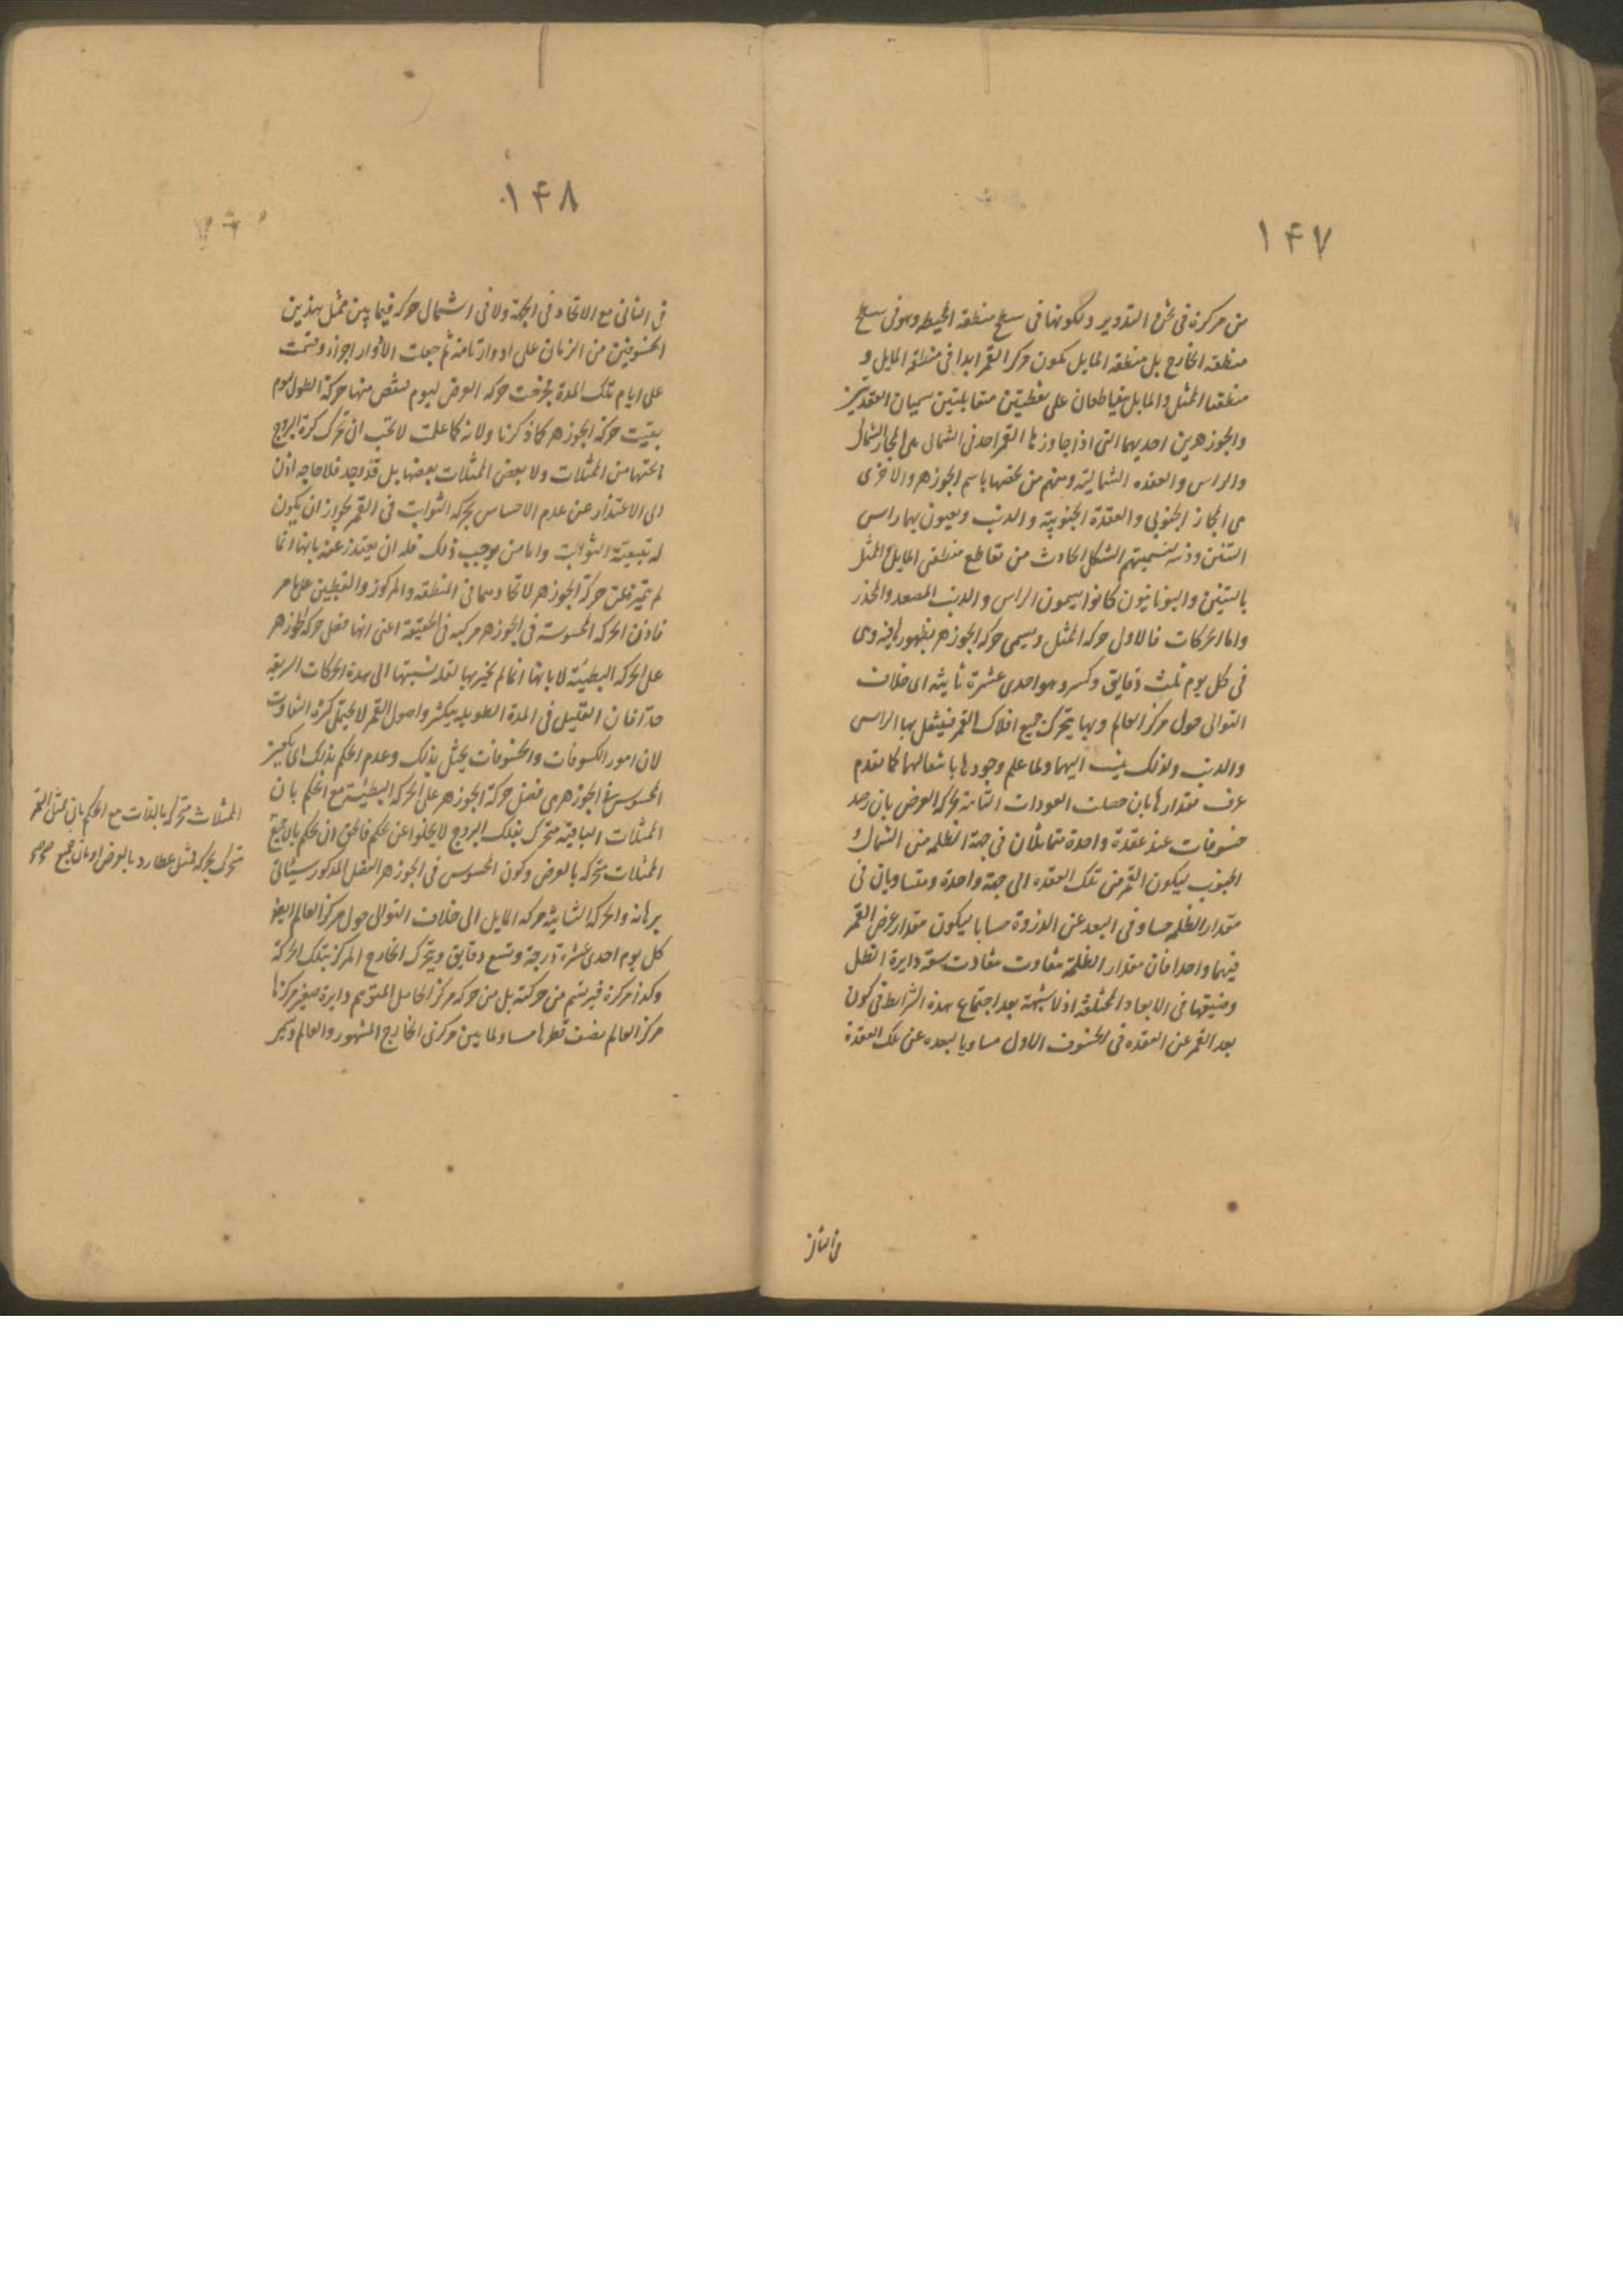 ١٤٧
من مركزه فى ثخن التدوير ولكونها فى سطح منطقه المحيطه وهو فى سطح
منطقه الخارج بل منطقه المايل يكون مركز القمر ابدا فى منطقه المايل و
منطقتا الممثل والمايل يتقاطعان على نقطتين متقابلتين يسميان العقدتين
والجوزهرين احديهما التى اذا جاوزها القمر اخذ فى الشمال هى المجاز الشمالى
والراس والعقده الشمالية ومنهم من يخصها باسم الجوزهر والاخرى
هى المجاز الجنوبى والعقدة الجنوبية والذنب ويعنون بهما راس
التنين وذنبه لتسميتهم الشكل الحادث من تقاطع منطقتى المايل والممثل
بالتنين واليونانيون كانوا يسمون الراس والذنب المصعد والمحذر
واما الحركات فالاول حركه الممثل ويسمى حركه الجوزهر لظهورها فيه وهى
فى كل يوم ثلث دقايق وكسر وهو احدى عشرة ثانيه الى خلاف
التوالى حول مركز العالم وبها يتحرك جميع افلاك القمر فينتقل بها الراس
والذنب ولذلك ينسب اليهما ولما علم وجودها بانتقالهما كما تقدم
عرف مقدارها بان حصلت العودات التامة بحركه العرض بان رصد
خسوفات عند عقدة واحدة متماثلان فى جهة الظلمه من الشمال و
الجنوب ليكون القمر من تلك العقده الى جهة واحدة ومتساويان فى
مقدار الظلمه مساو فى البعد عن الذروة حسابا ليكون مقدار عرض القمر
فيهما واحدا فان مقدار الظلمة متفاوت متفاوت سعة دايرة الظل
وضيقها فى الابعاد المختلفه اذ لا شبهة بعد اجتماع هذه الشرايط فى كون
بعد القمر عن العقده فى الخسوف الاول مساويا لبعده عن تلك العقدة
فى الثانى
١٤٨
فى الثانى مع الاتحاد فى الجهة ولا فى اشتمال حركه فيما بين ممثل هذين
الخسوفين من الزمان على ادوار تامة ثم جعلت الادوار اجزاء وقسمت
على ايام تلك المدة فخرجت حركه العرض ليوم فنقص منها حركة الطول ليوم
بقيت حركة الجوزهر كما ذكرنا ولانه كما علمت لا تجب ان تحرك كرة البروج
ما تحتها من الممثلات ولا بعض الممثلات بعضها بل قد يوجد فلا حاجه اذن
الى الاعتذار عن عدم الاحساس بحركه الثوابت فى القمر لجواز ان يكون
له تبعية الثوابت واما من يوجب ذلك فله ان يعتذر عنه بانها انما
لم تتميز عن حركة الجوزهر لاتحادهما فى المنطقه والمركز والقطبين على ما مر
فاذن الحركه المحسوسة فى الجوزهر مركبه فى الحقيقة اعنى انها فضل حركه الجوزهر
على الحركه البطيئة لا بانها انما لم يخبر بها لقلة نسبتها الى هذه الحركات السريعة
جدا فان القليل فى المدة الطويله يكثر واصول القمر لا يحتمل كثرة التفاوت
لان امور الكسوفات والخسوفات يختل بذلك وعدم الحكم بذلك اى بكون
المحسوس فى الجوزهر هى فضل حركة الجوزهر على الحركه البطيئة مع الحكم بان
الممثلات الباقية متحرك بفلك البروج لا يخلوا عن تحكم فالحق ان يحكم بان جميع
الممثلات متحركه بالعرض وكون المحسوس فى الجوزهر الفضل المذكور سيأتى
برهانه والحركه الثانيه حركه المايل الى خلاف التوالى حول مركز العالم ايضا
كل يوم احدى عشره درجة وتسع دقايق ويتحرك الخارج المركز بتلك الحركة
وكذا مركزه فيرتسم من حركته بل من حركه مركز الحامل المتوهم دايرة صغير مركزها
مركز العالم نصف قطرها مساو لما بين مركزى الخارج المشهور والعالم ويمر
الممثلات متحركه بالذات مع الحكم بان ممثل القمر
متحرك بحركه ممثل عطارد بالعرض او بان جميع